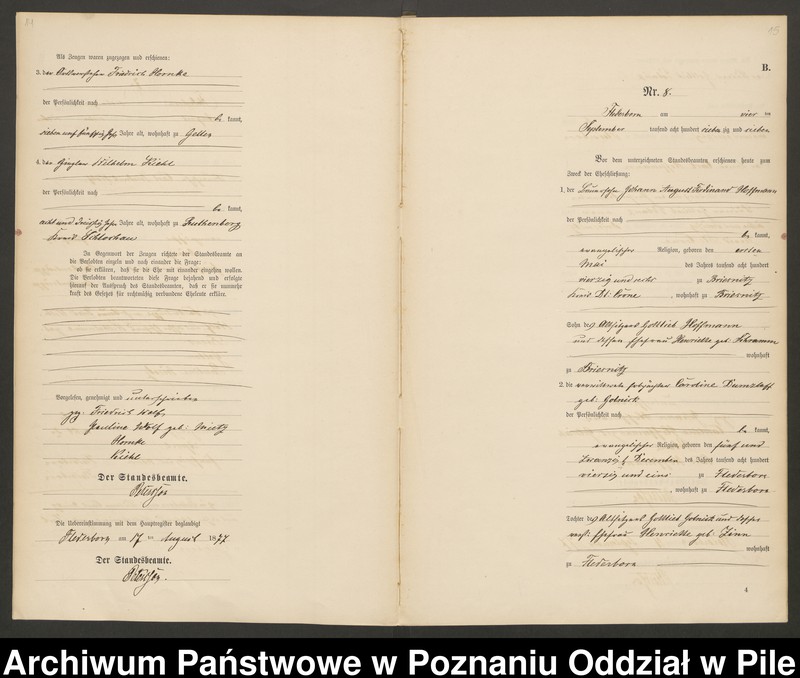 Als Zeugen waren zugezogen und erschienen:
3. der Friedrich Homke
der Persönlichkeit nach
be kannt,
sieben und fünfzig Jahre alt, wohnhaft zu Geller
4. der Wilhelm Kiehl
der Persönlichkeit nach
be kannt,
acht und dreißig Jahre alt, wohnhaft zu Ruthenberg
Kreis Schlochau
In Gegenwart der Zeugen richtete der Standesbeamte an
die Verlobten einzeln und nach einander die Frage:
ob sie erklären, daß sie die Ehe mit einander eingehen wollen.
Die Verlobten beantworteten diese Frage bejahend und erfolgte
hierauf der Ausspruch des Standesbeamten, daß er sie nunmehr
kraft des Gesetzes für rechtmäßig verbundene Eheleute erkläre.
Vorgelesen, genehmigt und unterschrieben
gez: Friedrich Wolf
Wolf geb: Mietz
Homke
Kiehl
Der Standesbeamte.
Die Uebereinstimmung mit dem Hauptregister beglaubigt
Flederborn am 17 ten August 1877
Der Standesbeamte.
B.
Nr. 8.
Flederborn am vier ten
September tausend acht hundert sieben zig und sieben
Vor dem unterzeichneten Standesbeamten erschienen heute zum
Zweck der Eheschließung:
1. der Bauersohn Johann August Ferdinand Hoffmann
der Persönlichkeit nach
be kannt,
evangelischer Religion, geboren den ersten
Mai des Jahres tausend acht hundert
vierzig und sechs zu Briesnitz
Kreis Dt: Crone, wohnhaft zu Briesnitz
Sohn des Altsitzers Gottlieb Hoffmann
und dessen Ehefrau Henriette geb: Schramm
wohnhaft
zu Briesnitz
2. die verwittwete Caroline Dumzlaff
geb: Golnick
der Persönlichkeit nach
be kannt,
evangelischer Religion, geboren den fünf und
zwanzigst Dezember des Jahres tausend acht hundert
vierzig und eins zu Flederborn
, wohnhaft zu Flederborn
Tochter des Altsitzers Gottlieb Golnick und dessen
Ehefrau Henriette geb: Zinn
wohnhaft
zu Flederborn
4
Archiwum Państwowe w Poznaniu Oddział w Pile